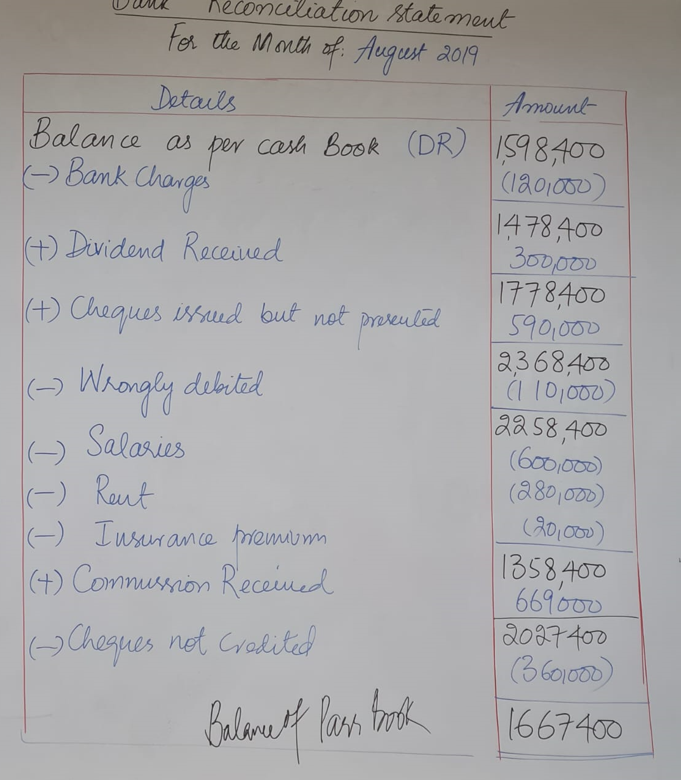 Bank Reconciliation Statement
For the Month of: August 2019
Details Amount
Balance as per cash Book (DR) 1,598,400
(-) Bank Charges (120,000)
1,478,400
(+) Dividend Received 300,000
1778,400
(+) Cheques issued but not presented 590,000
2,368,400
(-) Wrongly debited (110,000)
2258,400
(-) Salaries (600,000)
(-) Rent (280,000)
(-) Insurance premium (20,000)
1358,400
(+) Commission Received 669000
2027400
(-) Cheques not Credited (360,000)
Balance of Pass book 1667400